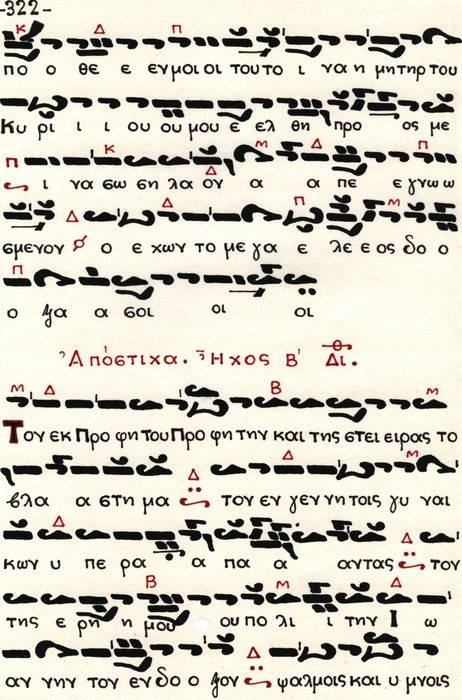 -322-
πο ο θε ε εν μοι οι του το ι να η μη τηρ του
Κυ ρι ι ι ου ου μου ε ελ θη προ ος με
ι να σω ση λα ον α α πε ε γνω ω
σμε νον ο ε χων το με γα ε λε ε ος δο ο
ο ξα α σοι οι οι
Ἀπόστιχα. Ἦχος Β΄ Δι.
Τον εκ Προ φη του Προ φη την και της στει ει ρας το
βλα α στη μα τον εν γεν νη τοις γυ ναι
κων υ πε ρα α πα α αν τας τον
της ε ρη η μου ου πο λι ι την Ι ω
αν νην τον εν δο ο ξον ψαλ μοις και υ μνοις